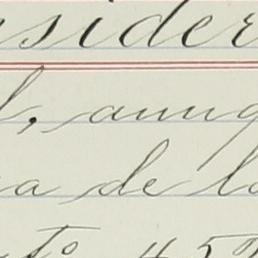 sider
l, aunq
a de la
to 45